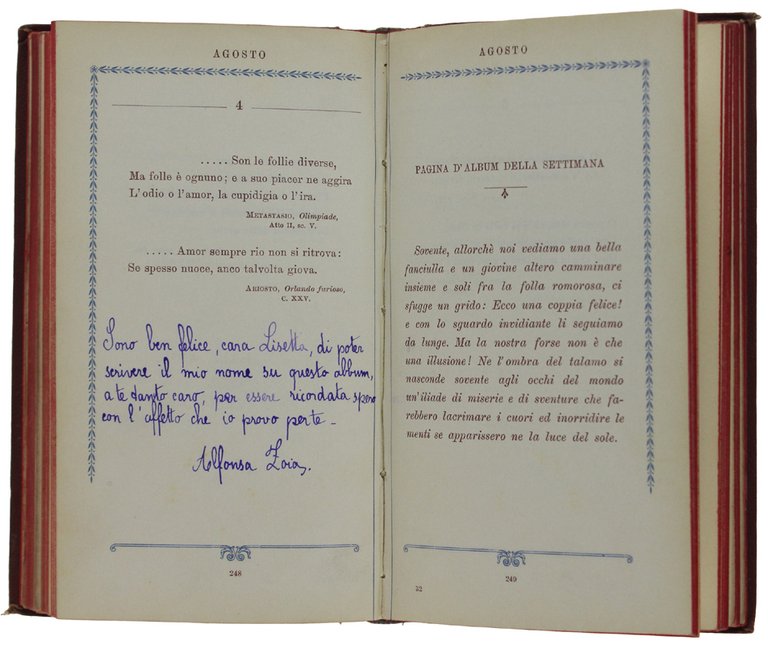 AGOSTO
4
..... Son le follie diverse,
Ma folle è ognuno; e a suo piacer ne aggira
L'odio o l'amor, la cupidigia o l'ira.
METASTASIO, Olimpiade,
Atto II, sc. V.
..... Amor sempre rio non si ritrova:
Se spesso nuoce, anco talvolta giova.
ARIOSTO, Orlando furioso,
C. XXV.
Sono ben felice, cara Lisetta, di poter
scrivere il mio nome su questo album,
a te tanto caro, per essere ricordata spero
con l'affetto che io provo per te_
Alfonsa Zoia.
248
AGOSTO
PAGINA D'ALBUM DELLA SETTIMANA
Sovente, allorchè noi vediamo una bella
fanciulla e un giovine altero camminare
insieme e soli fra la folla romorosa, ci
sfugge un grido: Ecco una coppia felice!
e con lo sguardo invidiante li seguiamo
da lunge. Ma la nostra forse non è che
una illusione! Ne l'ombra del talamo si
nasconde sovente agli occhi del mondo
un'iliade di miserie e di sventure che fa-
rebbero lacrimare i cuori ed inorridire le
menti se apparissero ne la luce del sole.
32
249